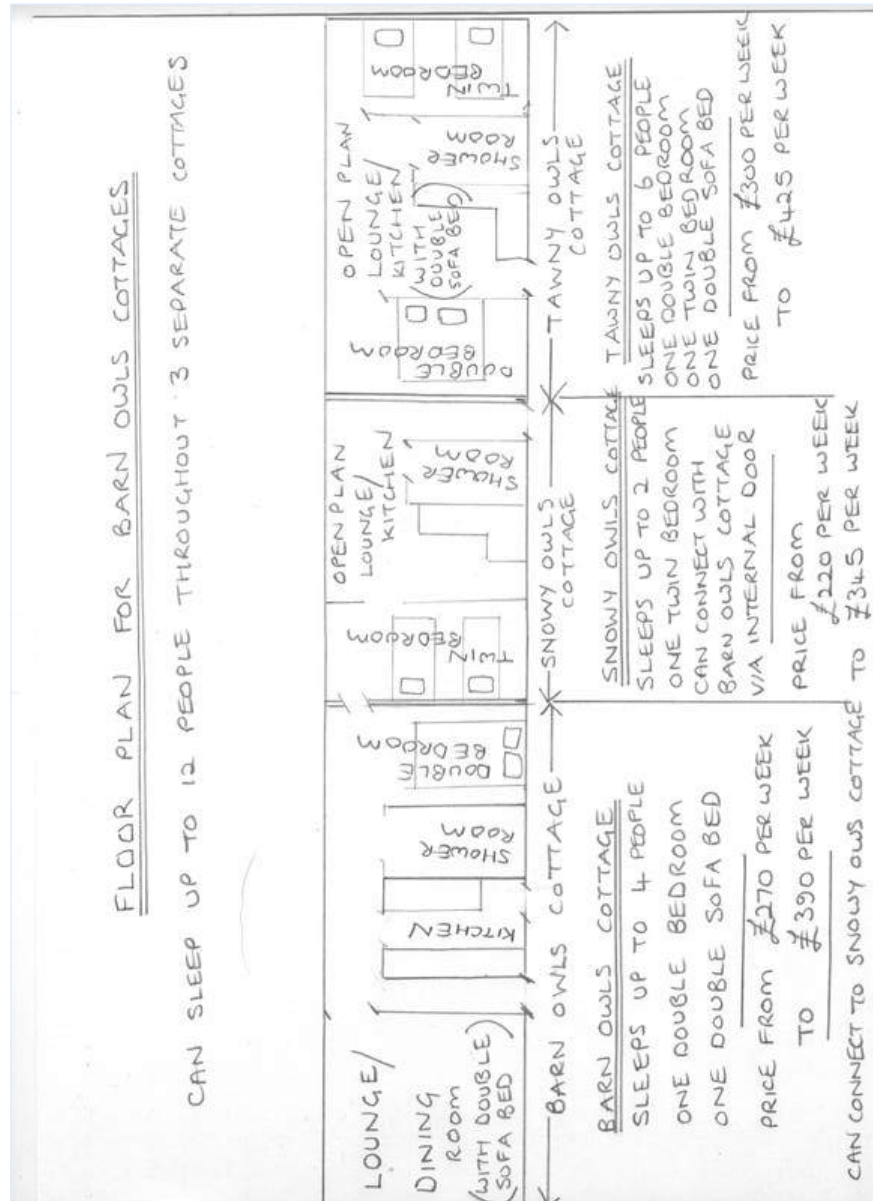 FLOOR PLAN FOR BARN OWLS COTTAGES
CAN SLEEP UP TO 12 PEOPLE THROUGHOUT 3 SEPARATE COTTAGES
LOUNGE/
DINING
ROOM
(WITH DOUBLE)
SOFA BED
KITCHEN
SHOWER
ROOM
DOUBLE
BEDROOM
TWIN
BEDROOM
OPEN PLAN
LOUNGE/
KITCHEN
SHOWER
ROOM
DOUBLE
BEDROOM
OPEN PLAN
LOUNGE/
KITCHEN
(WITH
DOUBLE
SOFA BED)
SHOWER
ROOM
TWIN
BEDROOM
BARN OWLS COTTAGE
SNOWY OWLS
COTTAGE
TAWNY OWLS
COTTAGE
BARN OWLS COTTAGE
SLEEPS UP TO 4 PEOPLE
ONE DOUBLE BEDROOM
ONE DOUBLE SOFA BED
PRICE FROM £270 PER WEEK
TO £390 PER WEEK
CAN CONNECT TO SNOWY OWS COTTAGE
SNOWY OWLS COTTAGE
SLEEPS UP TO 2 PEOPLE
ONE TWIN BEDROOM
CAN CONNECT WITH
BARN OWLS COTTAGE
VIA INTERNAL DOOR
PRICE FROM
£220 PER WEEK
TO £345 PER WEEK
TAWNY OWLS COTTAGE
SLEEPS UP TO 6 PEOPLE
ONE DOUBLE BEDROOM
ONE TWIN BEDROOM
ONE DOUBLE SOFA BED
PRICE FROM £300 PER WEEK
TO £425 PER WEEK